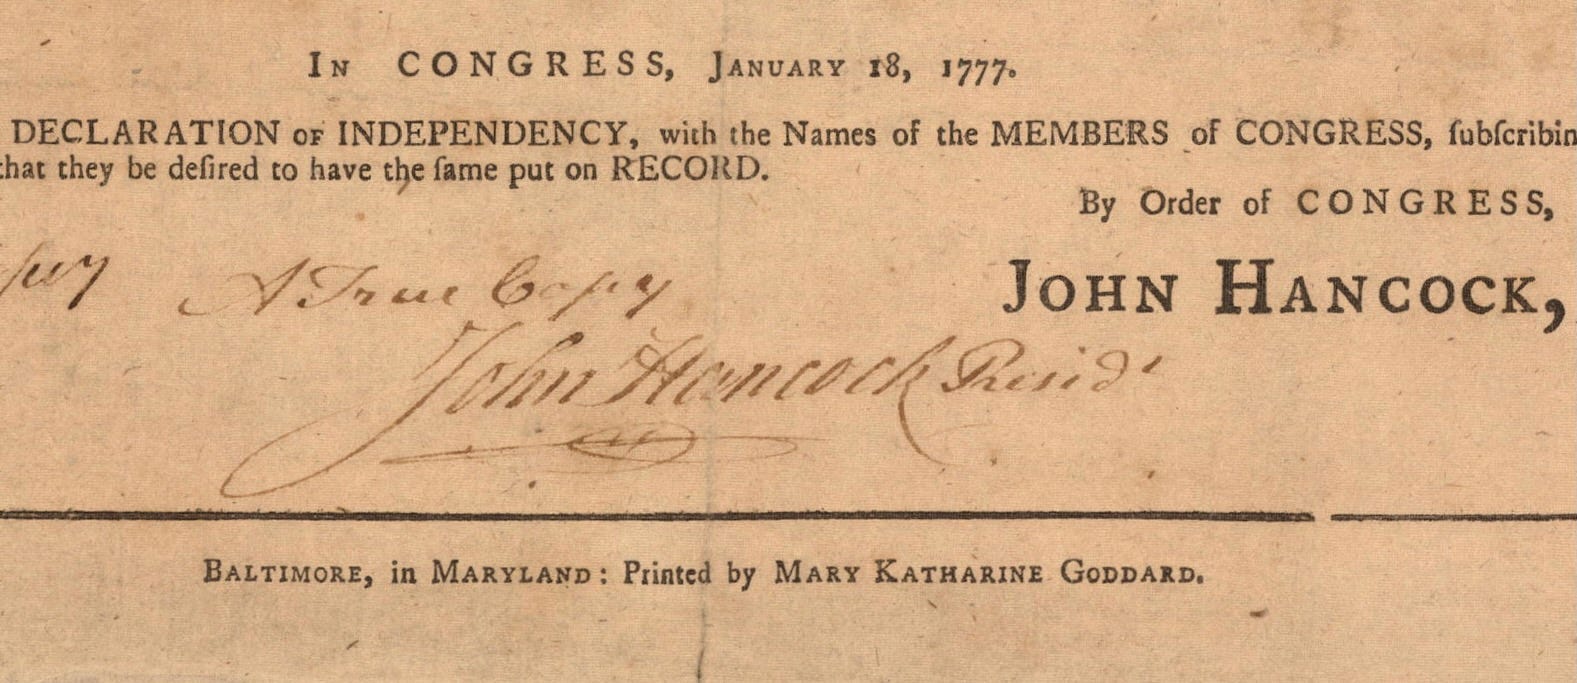 In CONGRESS, January 18, 1777.
DECLARATION of INDEPENDENCY, with the Names of the MEMBERS of CONGRESS, ſubſcribin
that they be deſired to have the ſame put on RECORD.
By Order of CONGRESS,
John Hancock,
A True Copy
John Hancock Presidt
Baltimore, in Maryland: Printed by Mary Katharine Goddard.